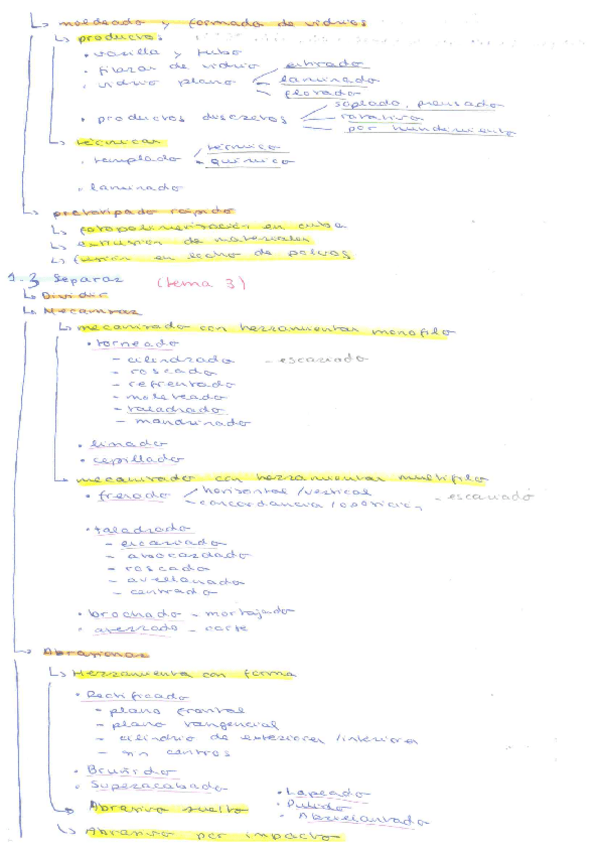 ↳ moldeado y formado de vidrios
↳ productos
• varilla y tubo
• fibras de vidrio
• vidrio plano
estirado
laminado
flotado
• productos discretos
soplado, prensado
rotativo
por hundimiento
↳ técnicas
• templado
térmico
químico
• laminado
↳ prototipado rápido
↳ fotopolimerización en cuba
↳ extrusión de materiales
↳ fusión en lecho de polvos
1.3 Separar (tema 3)
↳ Dividir
↳ Mecanizar
↳ mecanizado con herramientas monofilo
• torneado
- cilindrado - escariado
- roscado
- refrentado
- moleteado
- taladrado
- mandrinado
• limado
• cepillado
↳ mecanizado con herramientas multifilo
• fresado
horizontal / vertical
concordancia / oposición
- escariado
• taladrado
- escariado
- abocardado
- roscado
- avellanado
- centrado
• brochado - mortajado
• aserrado - corte
↳ Abrasionar
↳ Herramienta con forma
• Rectificado
- plano frontal
- plano tangencial
- cilindrio de exteriores / interiores
- sin centros
• Bruñido
• Superacabado
↳ Abrasivo suelto
• Lapeado
• Pulido
• Abrillantado
↳ Abrasivo por impacto